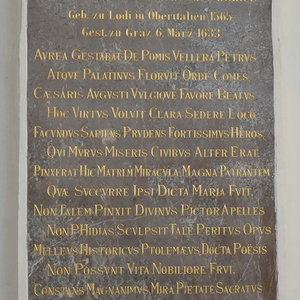 Geb. zu Lodi in Oberitalien 1565
Gest. zu Graz 6. März 1633
AVREA GESTABAT DE POMIS VELLERA PETRVS
ATQVE PALATINVS FLORVIT ORBE COMES
CÆSARIS AVGVSTI VVLGIQVE FAVORE BEATVS
HOC VIRTVS VOLVIT CLARA SEDERE LOCO
FACVNDVS SAPIENS PRVDENS FORTISSIMVS HEROS
QVI MVRVS MISERIS CIVIBVS ALTER ERAT
PINXERAT HIC MATREM MIRACVLA MAGNA PATRANTEM
QVÆ SVCCVRRE IPSI DICTA MARIA FVIT
NON TALEM PINXIT DIVINVS PICTOR APELLES
NON PHIDIAS SCVLPSIT TALE PERITVS OPVS
MELLEVS HISTORICVS PTOLEMÆVS, DOCTA POËSIS
NON POSSVNT VITA NOBILIORE FRVI,
CONSTANS MAGNANIMVS MIRA PIETATE SACRATVS